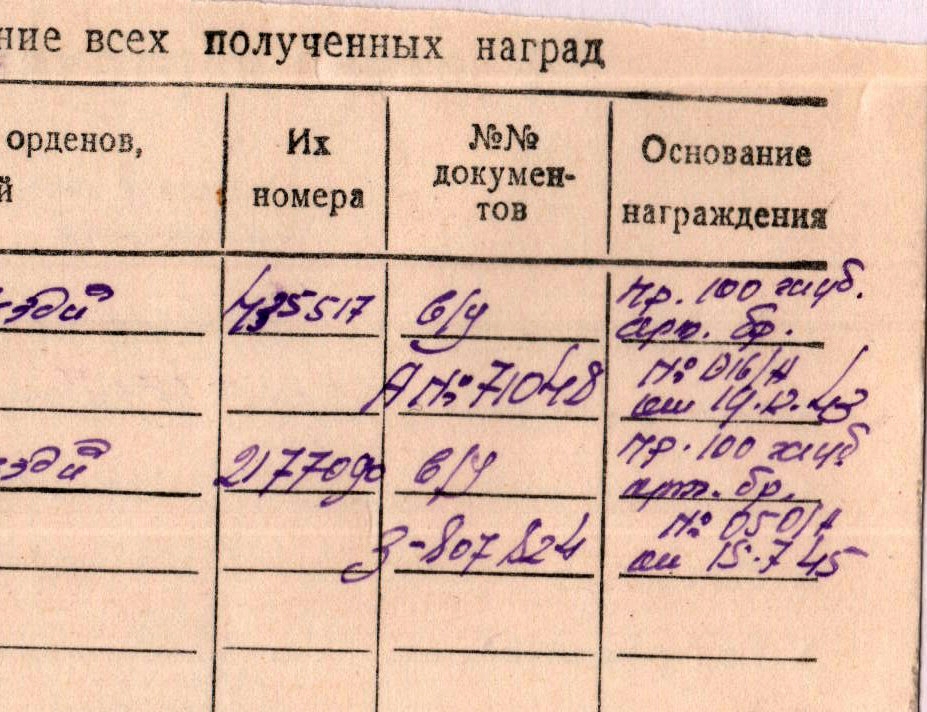 ние всех полученных наград
орденов,
й
Их
номера
№№
докумен-
тов
Основание
награждения
435517
в/у
Пр. 100 гауб.
арт. бр.
А № 71048
№ 016/н
от 19.12.43
2177090
в/у
Пр. 100 гауб
арт. бр.
З-807824
№ 050/н
от 15.7 45